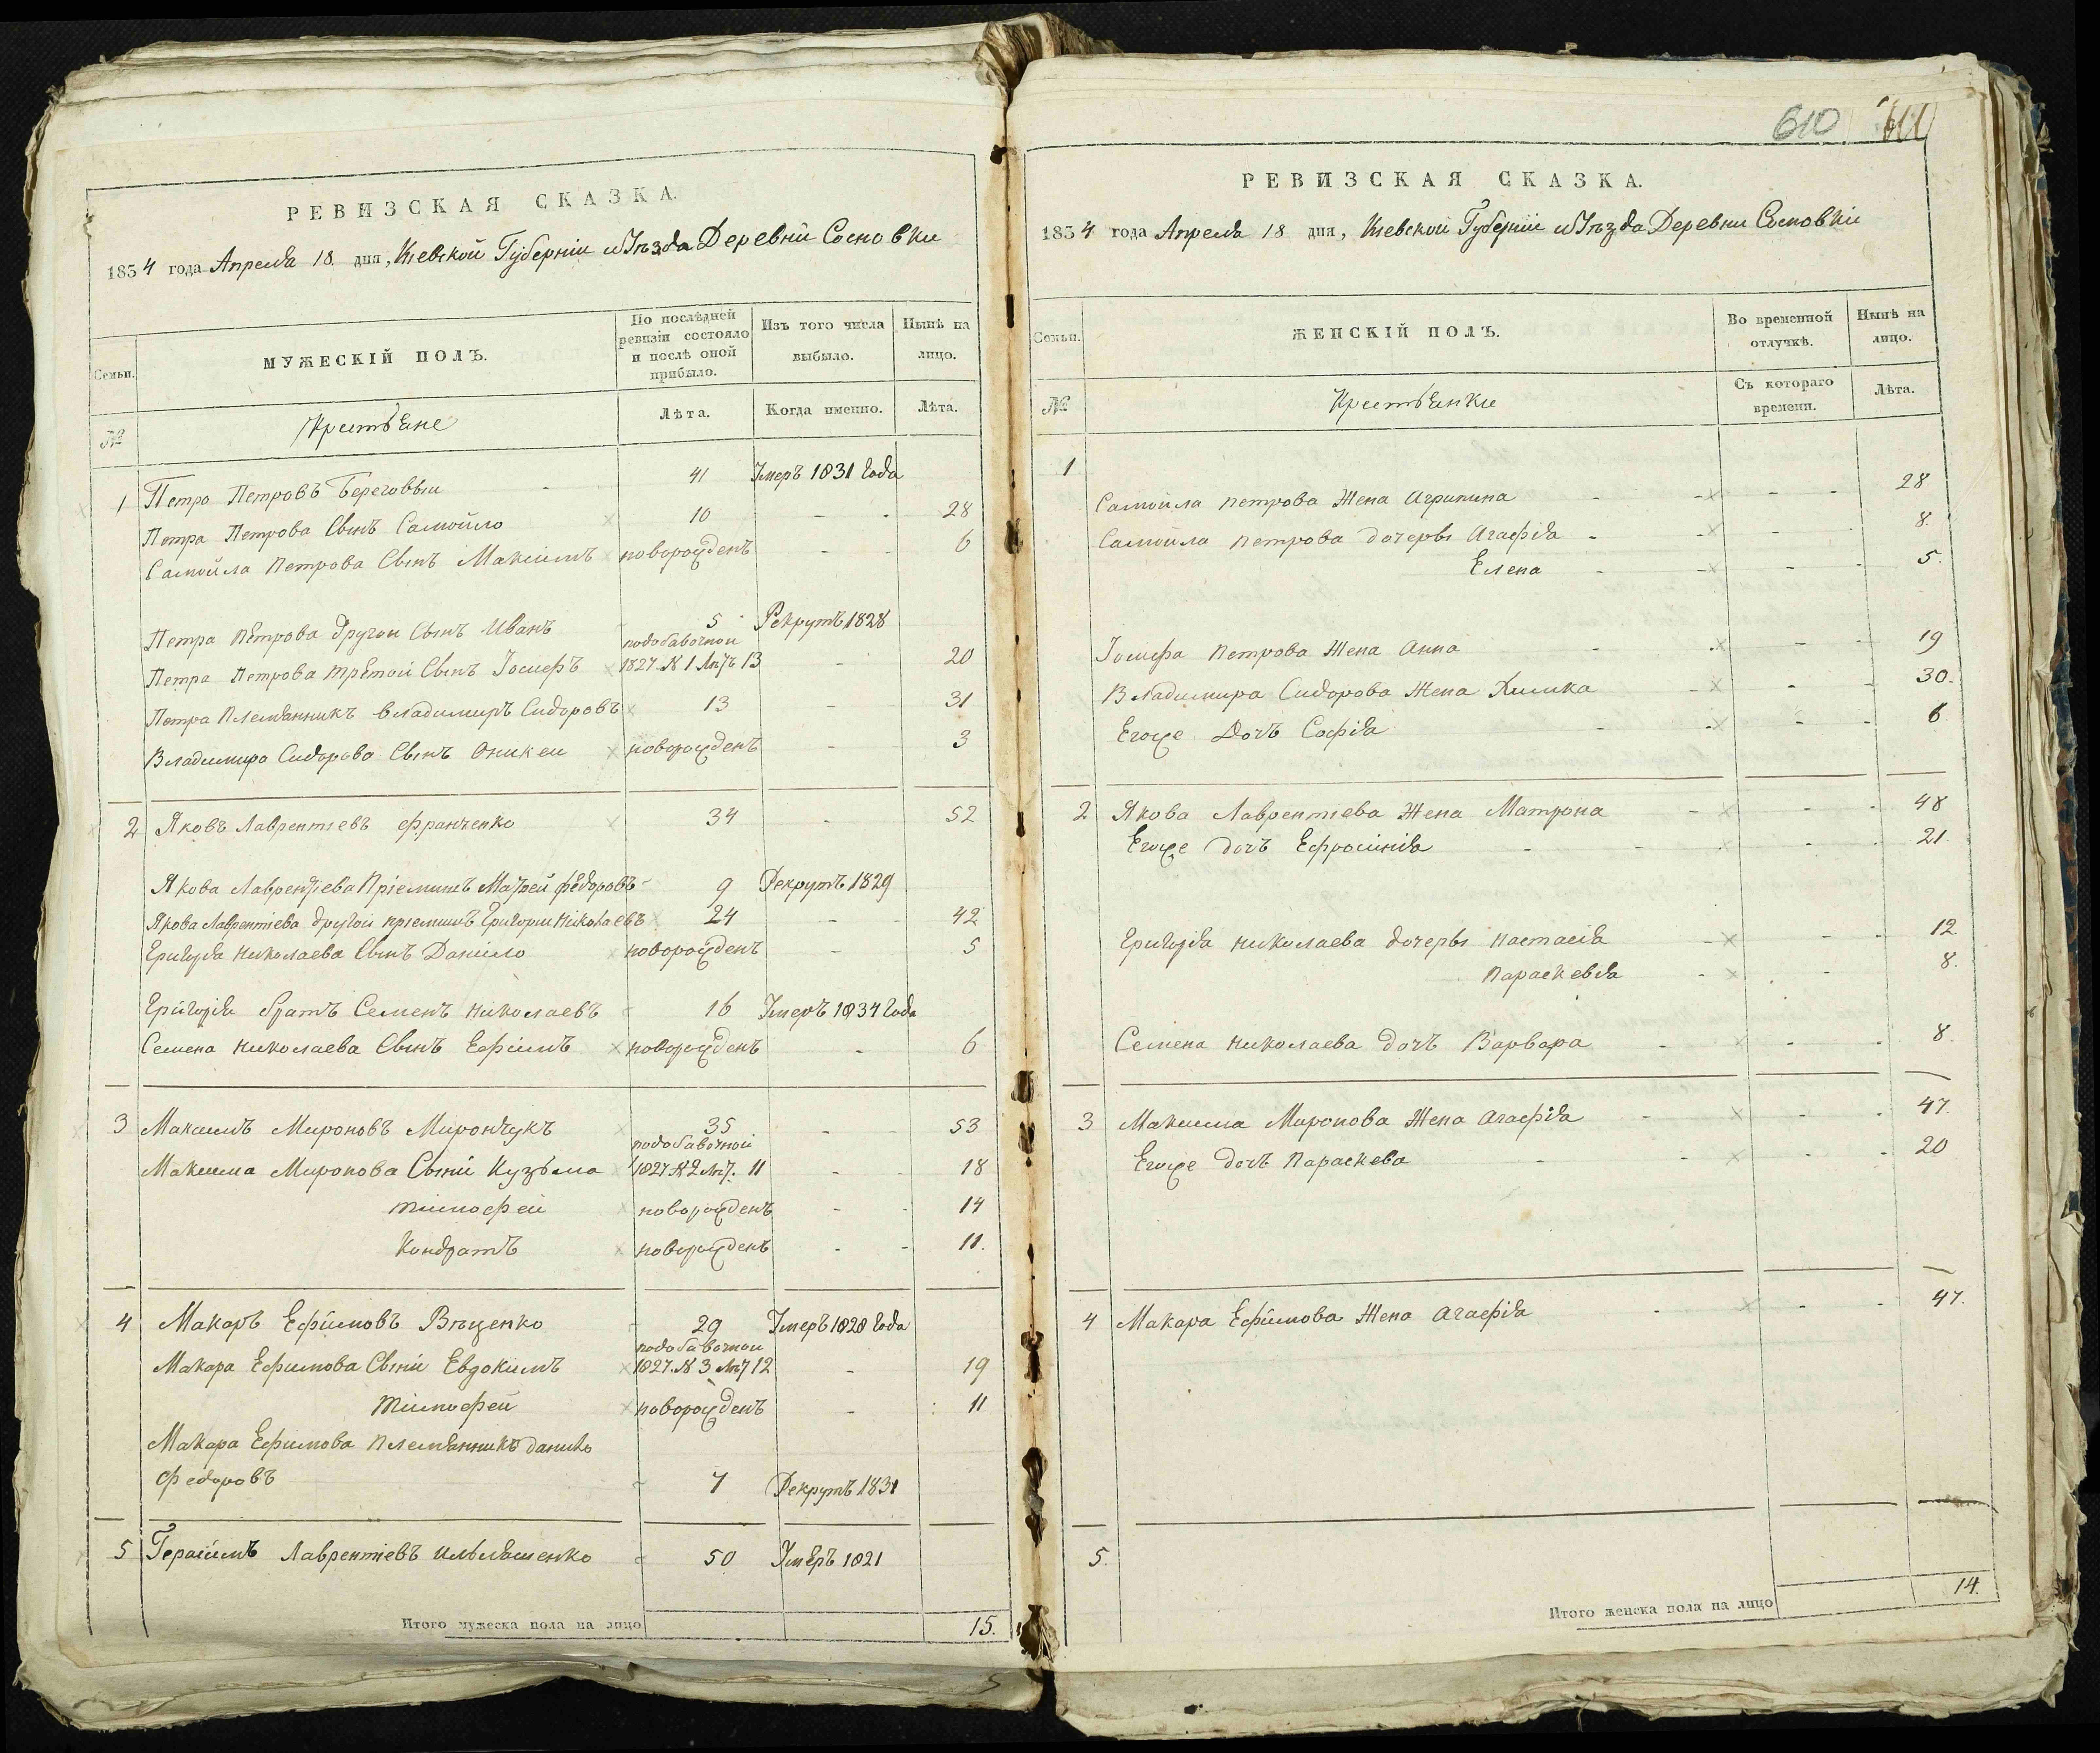 РЕВИЗСКАЯ СКАЗКА.
1834 года Апреля 18 дня, Киевской Губернiи и Уѣзда Деревни Сосновки
Семьи.
МУЖЕСКІЙ ПОЛЪ.
По послѣдней ревизіи состояло и послѣ оной прибыло.
Изъ того числа выбыло.
Нынѣ на лицо.
№
Крестьяне
Лѣта.
Когда именно.
Лѣта.
1 Петро Петровъ Береговый 41 Умеръ 1831 Года
Петра Петрова Сынъ Самойло 10 - - 28
Самойла Петрова Сынъ Максимъ новорожденъ - - 6
Петра Петрова другой Сынъ Иванъ 5 Рекрутъ 1828
Петра Петрова третой Сынъ Іосифъ подобавочной 1827. N 1 Лѣтъ 13 - 20
Петра Племянникъ Владимиръ Сидоровъ 13 - - 31
Владимира Сидорова Сынъ Оникей новорожденъ - - 3
2 Яковъ Лаврентіевъ Франченко 34 - 52
Якова Лаврентіева Пріемишъ Матфей Федоровъ 9 Рекрутъ 1829
Якова Лаврентіева другой пріемишъ Григорий Николаевъ 24 - - 42
Григорія Николаева Сынъ Данило новорожденъ - 5
Григорія братъ Семенъ Николаевъ 16 Умеръ 1834 Года
Семена Николаева Сынъ Ефимъ новорожденъ - 6
3 Максимъ Мироновъ Мирончукъ 35 - - 53
Максима Миронова Сыны Кузьма подобавочной 1827 N 2 Лѣт. 11 - - 18
Тимофей новорожденъ - - 14
Кондратъ новорожденъ - - 11.
4 Макаръ Ефимовъ Вѣценко 29 Умеръ 1828 Года
Макара Ефимова Сыны Евдокимъ подобавочной 1827. N 3 Лѣт 12 - 19
Тимофей новорожденъ - 11
Макара Ефимова племянникъ данило
Федоровъ 7 Рекрутъ 1831
5 Герасимъ Лаврентіевъ Ильяшенко 50 Умеръ 1821
Итого мужеска пола на лицо 15.
610 611
РЕВИЗСКАЯ СКАЗКА.
1834 года Апреля 18 дня, Киевской Губерніи и Уѣзда Деревни Сосновки
Семьи.
ЖЕНСКІЙ ПОЛЪ.
Во временной отлучкѣ.
Нынѣ на лицо.
№
Крестьянки
Съ котораго времени.
Лѣта.
1
Самойла петрова Жена Агрипина - - - - 28
Самойла петрова дочеры Агафія - - - 8.
Елена - - - - 5.
Іосифа Петрова Жена Анна - - - - 19
Владимира Сидорова Жена Химка - - - 30.
Егоже Дочъ Софія - - - - 6
2 Якова Лаврентіева Жена Матрона - - - 48
Егоже дочъ Ефросинія - - - - 21
Григорія Николаева дочеры Настасія - - - 12.
Параскевія - - 8.
Семена Николаева дочъ Варвара - - - 8.
3 Максима Миронова Жена Агафія - - - 47.
Егоже дочъ Параскева - - - - 20
4 Макара Ефимова Жена Агафія - - - 47.
5.
Итого женска пола на лицо 14.